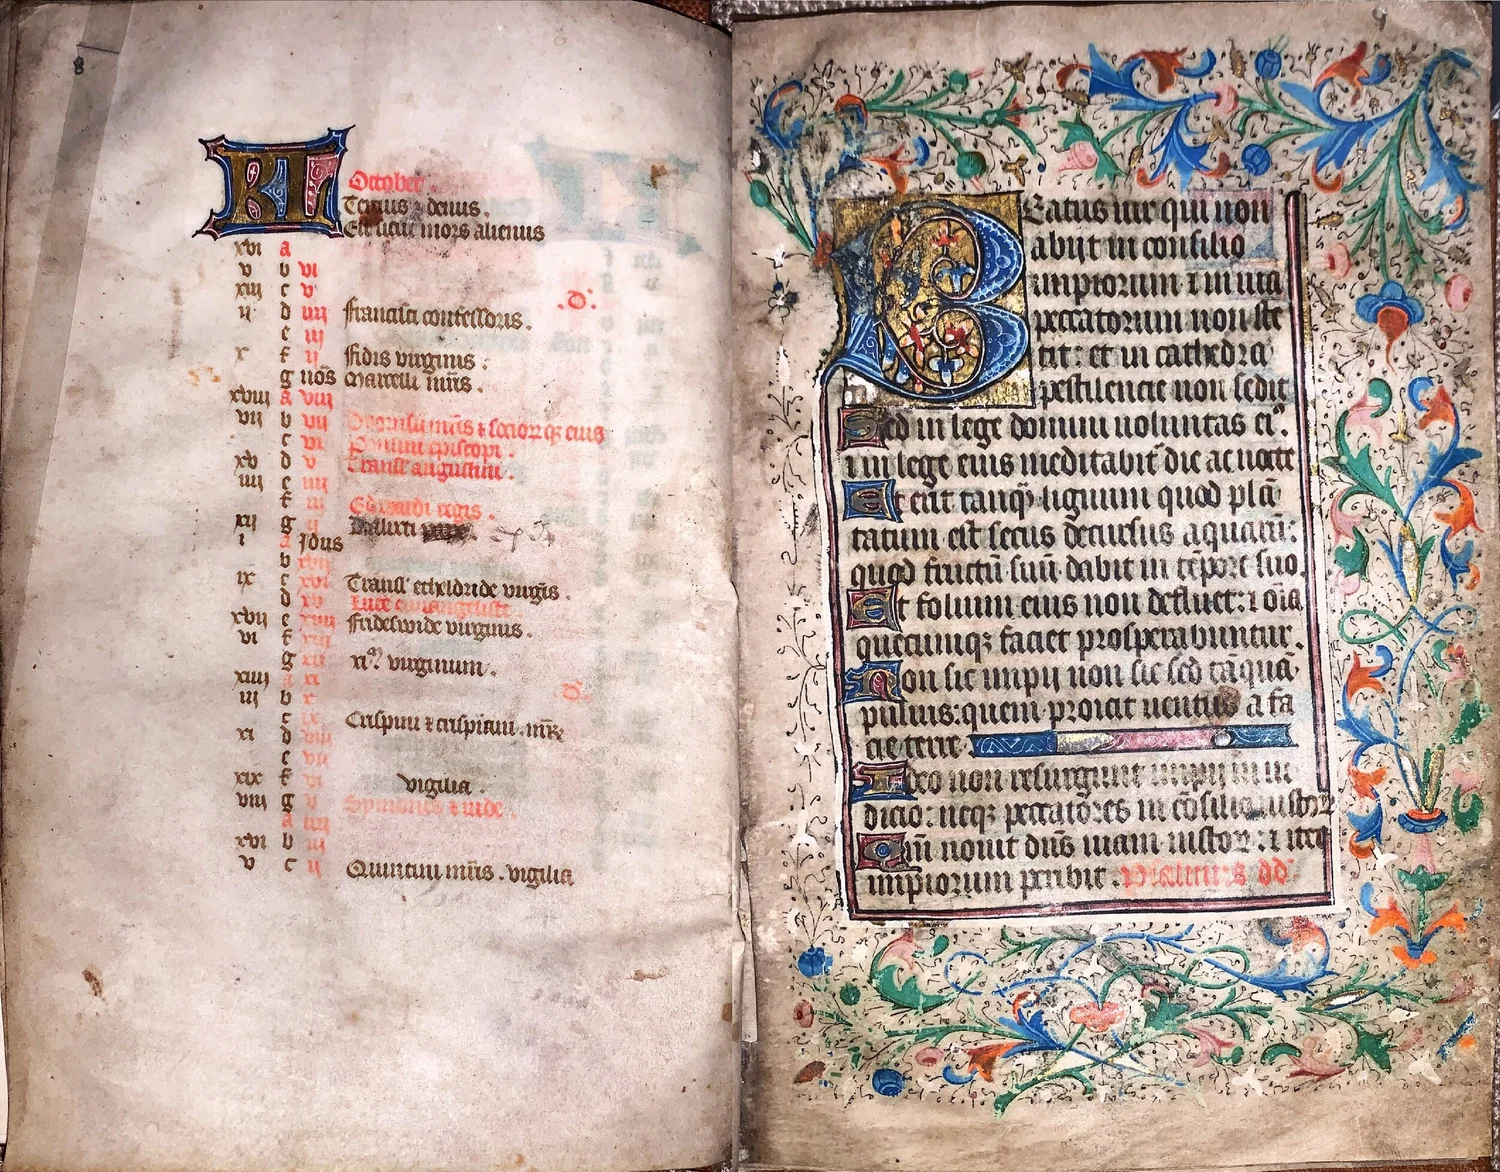 8
KL October.
Tercius & denus.
Est sicut mors alienus
xvi a
v b vi
xiii c v
ii d iiii Francisci confessoris. .D.
e iii
x f ii Fidis virginis.
g nōs Marcelli mr̄is.
xviii a viii
vii b vii Dionisii mr̄is & socior qȝ eius
c vi Paulini episcopi.
xv d v Transl' augustini.
iiii e iiii
f iii Edwardi regis.
xii g ii Kalixti
i a Idus
b xvii
ix c xvi Transl' etheldride virgīs.
d xv Luce euuangeliste
xvii e xiiii Frideswide virginis.
vi f xiii
g xii xi. virginum.
xiiii a xi .D.
iii b x
c ix Crispini & crispiani. mr̄
xi d viii
e vii
xix f vi vigilia.
viii g v Symonis & iude.
a iiii
xvi b iii
v c ii Quintini mr̄is. vigilia
9
Beatus uir qui non
abijt in consilio
impiorum ⁊ in uia
peccatorum non ste
tit: et in cathedra
pestilencie non sedit
Sed in lege domini uoluntas eiꝰ.
⁊ in lege eius meditabit̄ die ac nocte
Et erit tanqȝ lignum quod plā
tatum est secus decursus aquarū:
quod fructū suū dabit in tēpore suo.
Et folium eius non defluet: ⁊ oīa
quecumqȝ faciet prosperabuntur.
Non sic impij non sic sed tāqua
puluis: quem proicit uentus a fa
cie terre
Ideo non resurgunt impij in iu
dicio: neqȝ peccatores in cōsilio iustoꝝ
Qm̄ nouit dn̄s uiam iustoꝝ: ⁊ iter
impiorum peribit. Psalmus dd'